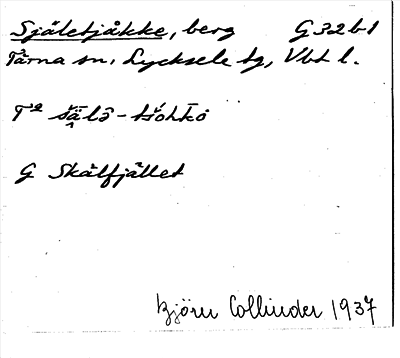 Själetjåkke, berg G 32 b 1
Tärna sn, Lycksele lg, Vbt l.
T²
G Skålfjället
Björn Collinder 1937